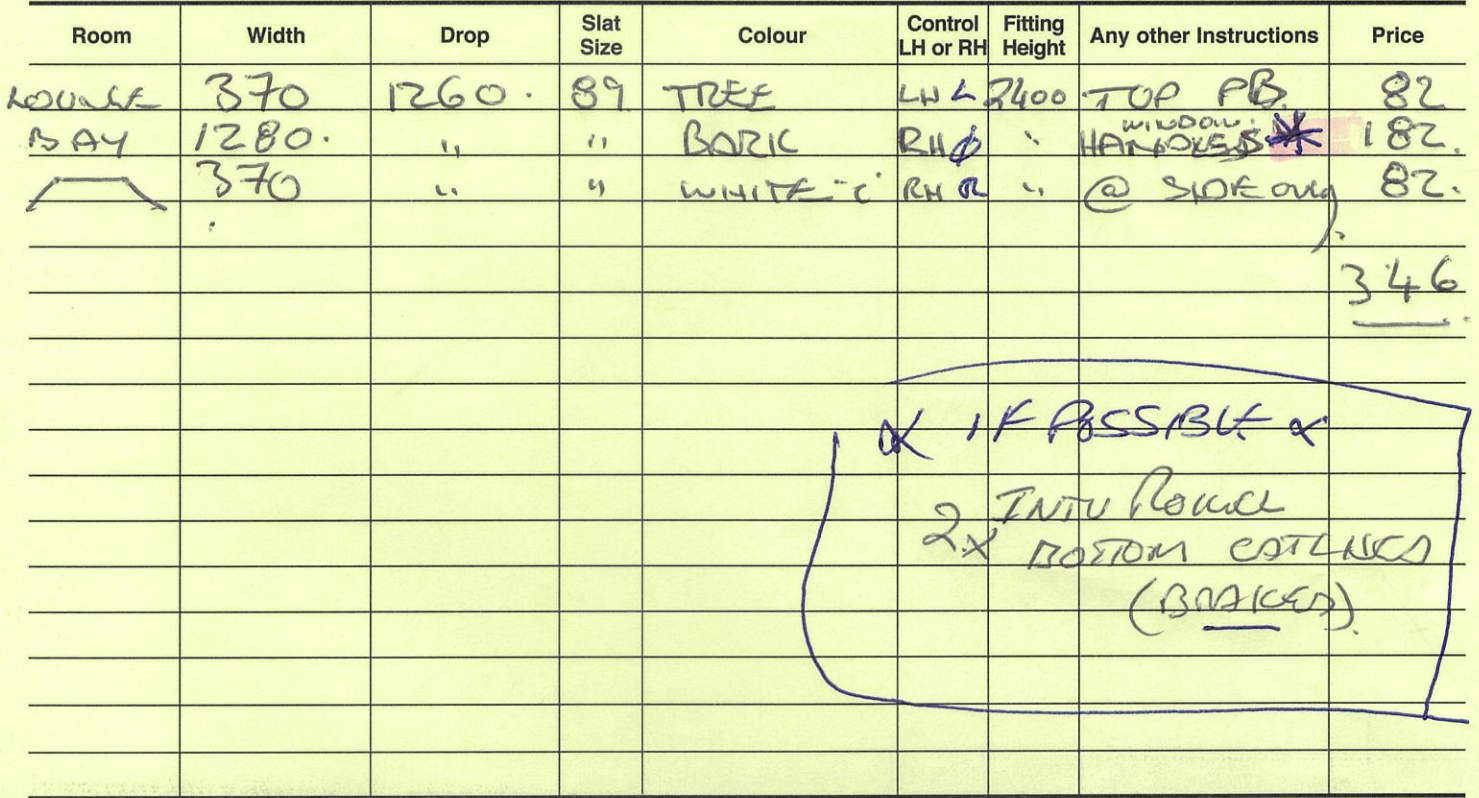 Room Width Drop Slat Size Colour Control LH or RH Fitting Height Any other Instructions Price
LOUNGE 370 1260. 89 TREE LH L 2400 TOP PB. 82
BAY 1280. " " BARK RH " WINDOW HANDLES * 182.
370 " " WHITE "C" RH R " @ SIDE only. 82.
346
* IF POSSIBLE *
2x INTU
BOTTOM
(BRAKED).